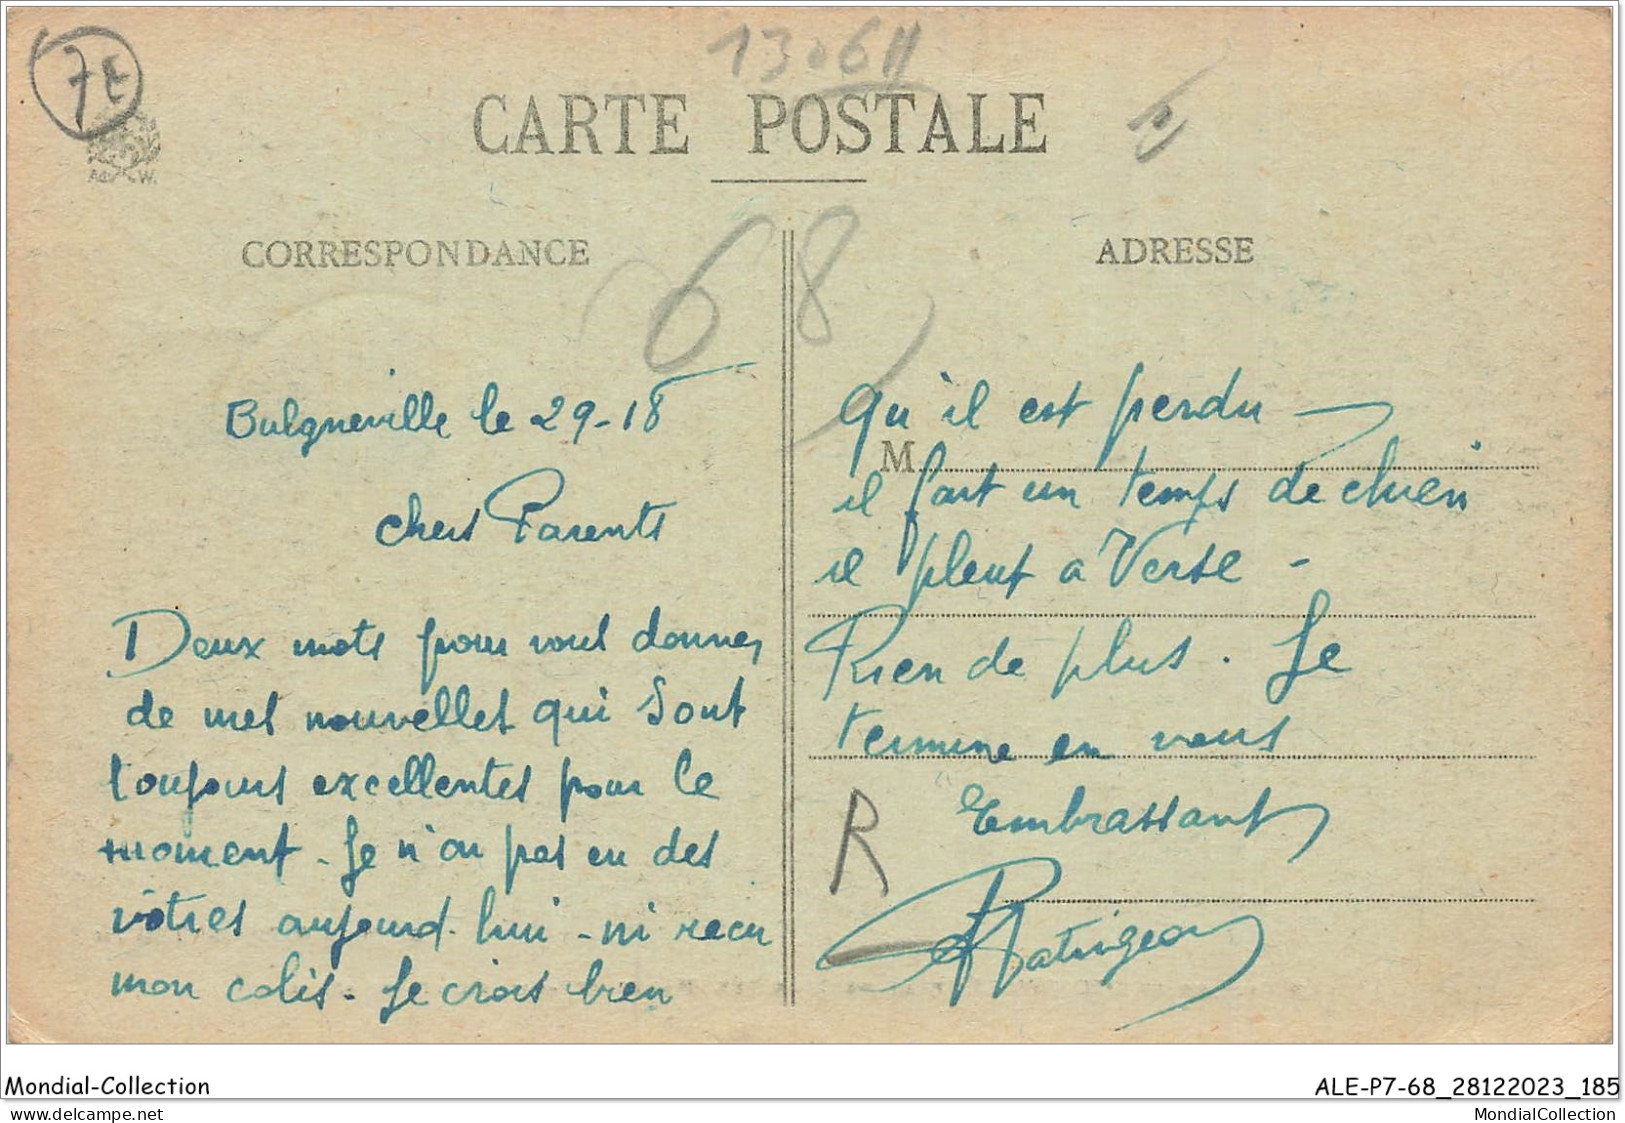 7E
13061
CARTE POSTALE
CORRESPONDANCE
ADRESSE
68
Bulgneville le 29-18
chers Parents
Deux mots pour vous donner
de mes nouvelles qui sont
toujours excellentes pour le
moment - Je n'ai pas eu des
vôtres aujourd-hui - ni recu
mon colis. Je crois bien
qu'il est perdu
M
il fait un temps de chien
il pleut a Verse -
Rien de plus. Je
termine en vous
Embrassant
R
Mondial-Collection
ALE-P7-68_28122023_185
MondialCollection
delcampe.net